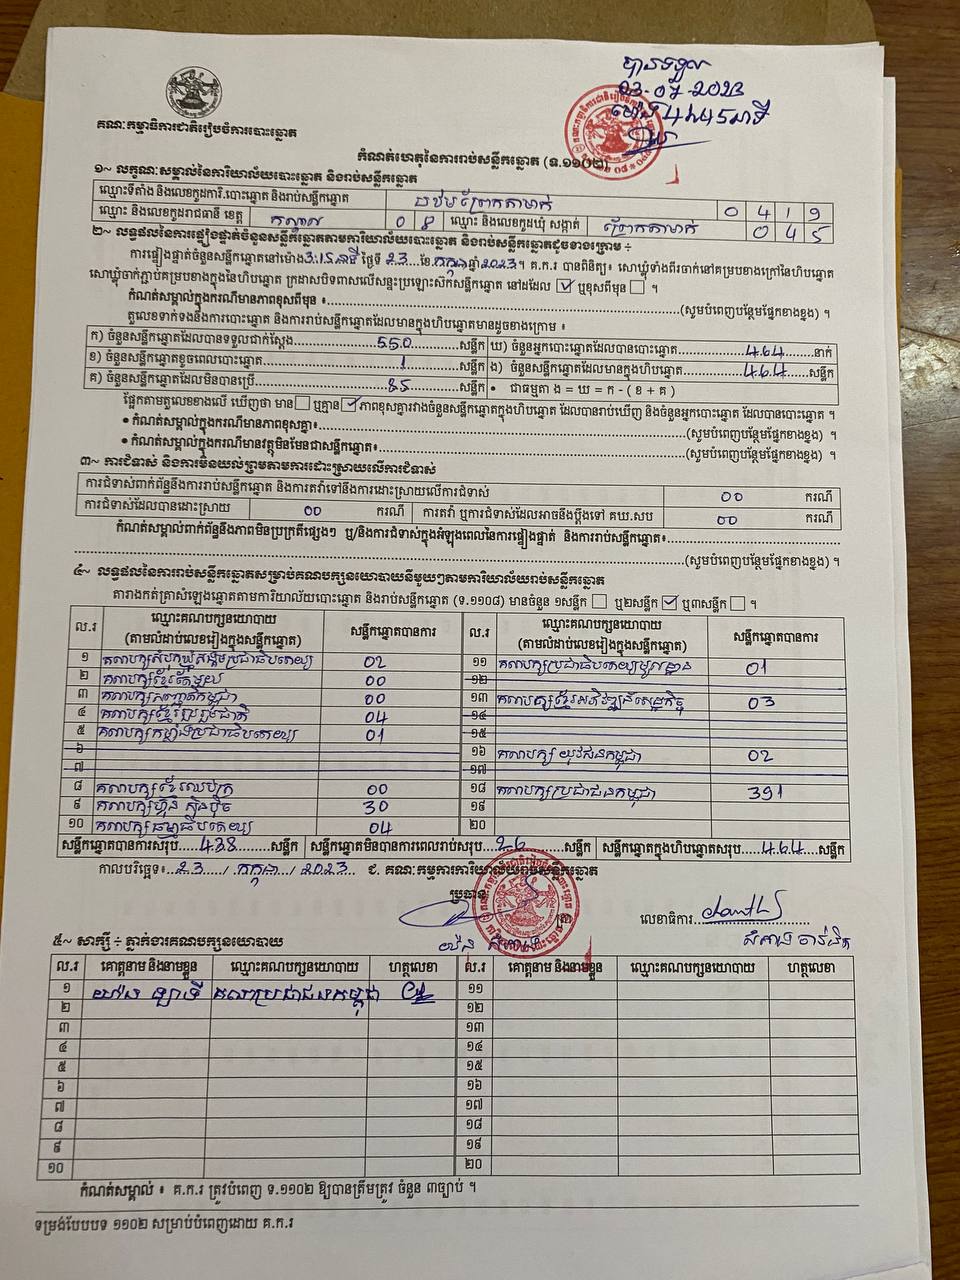 បានទទួល
គណៈកម្មាធិការជាតិរៀបចំការបោះឆ្នោត
កំណត់ហេតុនៃការរាប់សន្លឹកឆ្នោត (ទ.១១០២)
១~ លក្ខណៈសម្គាល់នៃការិយាល័យបោះឆ្នោត និងរាប់សន្លឹកឆ្នោត
ឈ្មោះទីតាំង និងលេខកូដការិ.បោះឆ្នោត និងរាប់សន្លឹកឆ្នោត 0 4 1 9
ឈ្មោះ និងលេខកូដរាជធានី ខេត្ត កណ្តាល 0 8 ឈ្មោះ និងលេខកូដឃុំ សង្កាត់ ព្រែកតាមាក់ 0 4 5
២~ លទ្ធផលនៃការផ្ទៀងផ្ទាត់ចំនួនសន្លឹកឆ្នោតតាមការិយាល័យបោះឆ្នោត និងរាប់សន្លឹកឆ្នោតដូចខាងក្រោម ÷
ការផ្ទៀងផ្ទាត់ចំនួនសន្លឹកឆ្នោតនៅម៉ោង 3:15 នាទី ថ្ងៃទី 23 ខែ កក្កដា ឆ្នាំ 2023 ។ គ.ក.រ បានពិនិត្យ៖ សោឃ្មុំទាំងពីរចាក់នៅគម្របខាងក្រៅនៃហិបឆ្នោត
សោឃ្មុំចាក់ភ្ជាប់គម្របខាងក្នុងនៃហិបឆ្នោត ក្រដាសបិទពាសលើសន្ទះប្រឡោះស៊កសន្លឹកឆ្នោត នៅដដែល ☑ ឬខុសពីមុន ☐ ។
កំណត់សម្គាល់ក្នុងករណីមានភាពខុសពីមុន ៖ (សូមបំពេញបន្ថែមផ្នែកខាងខ្នង) ។
តួលេខទាក់ទងនឹងការបោះឆ្នោត និងការរាប់សន្លឹកឆ្នោតដែលមានក្នុងហិបឆ្នោតមានដូចខាងក្រោម ៖
ក) ចំនួនសន្លឹកឆ្នោតដែលបានទទួលជាក់ស្តែង 550 សន្លឹក ឃ) ចំនួនអ្នកបោះឆ្នោតដែលបានបោះឆ្នោត 464 នាក់
ខ) ចំនួនសន្លឹកឆ្នោតខូចពេលបោះឆ្នោត 1 សន្លឹក ង) ចំនួនសន្លឹកឆ្នោតដែលមានក្នុងហិបឆ្នោត 464 សន្លឹក
គ) ចំនួនសន្លឹកឆ្នោតដែលមិនបានប្រើ 85 សន្លឹក • ជាធម្មតា ង = ឃ = ក - ( ខ + គ )
ផ្អែកតាមតួលេខខាងលើ ឃើញថា មាន ☐ ឬគ្មាន ☑ ភាពខុសគ្នារវាងចំនួនសន្លឹកឆ្នោតក្នុងហិបឆ្នោត ដែលបានរាប់ឃើញ និងចំនួនអ្នកបោះឆ្នោត ដែលបានបោះឆ្នោត ។
• កំណត់សម្គាល់ក្នុងករណីមានភាពខុសគ្នា៖ (សូមបំពេញបន្ថែមផ្នែកខាងខ្នង) ។
• កំណត់សម្គាល់ក្នុងករណីមានវត្ថុមិនមែនជាសន្លឹកឆ្នោត៖ (សូមបំពេញបន្ថែមផ្នែកខាងខ្នង) ។
៣~ ការជំទាស់ និងការមិនយល់ព្រមតាមការដោះស្រាយលើការជំទាស់
ការជំទាស់ពាក់ព័ន្ធនឹងការរាប់សន្លឹកឆ្នោត និងការតវ៉ាទៅនឹងការដោះស្រាយលើការជំទាស់ 00 ករណី
ការជំទាស់ដែលបានដោះស្រាយ 00 ករណី ការតវ៉ា ឬការជំទាស់ដែលអាចនឹងប្តឹងទៅ គឃ.សប 00 ករណី
កំណត់សម្គាល់ពាក់ព័ន្ធនឹងភាពមិនប្រក្រតីផ្សេងៗ ឬ/និងការជំទាស់ក្នុងអំឡុងពេលនៃការផ្ទៀងផ្ទាត់ និងការរាប់សន្លឹកឆ្នោត៖
(សូមបំពេញបន្ថែមផ្នែកខាងខ្នង) ។
៤~ លទ្ធផលនៃការរាប់សន្លឹកឆ្នោតសម្រាប់គណបក្សនយោបាយនីមួយៗតាមការិយាល័យរាប់សន្លឹកឆ្នោត
តារាងកត់ត្រាសំឡេងឆ្នោតតាមការិយាល័យបោះឆ្នោត និងរាប់សន្លឹកឆ្នោត (ទ.១១០៨) មានចំនួន ១សន្លឹក ☐ ឬ២សន្លឹក ☑ ឬ៣សន្លឹក ☐ ។
ល.រ ឈ្មោះគណបក្សនយោបាយ (តាមលំដាប់លេខរៀងក្នុងសន្លឹកឆ្នោត) សន្លឹកឆ្នោតបានការ ល.រ ឈ្មោះគណបក្សនយោបាយ (តាមលំដាប់លេខរៀងក្នុងសន្លឹកឆ្នោត) សន្លឹកឆ្នោតបានការ
១ គណបក្សសំបុកឃ្មុំសង្គមប្រជាធិបតេយ្យ 02 ១១ គណបក្សប្រជាធិបតេយ្យមូលដ្ឋាន 01
២ គណបក្សខ្មែរតែមួយ 00 ១២
៣ គណបក្សសញ្ជាតិកម្ពុជា 00 ១៣ គណបក្សខ្មែរអភិវឌ្ឍន៍សេដ្ឋកិច្ច 03
៤ គណបក្សខ្មែររួបរួមជាតិ 04 ១៤
៥ គណបក្សកម្លាំងប្រជាធិបតេយ្យ 01 ១៥
៦ ១៦ គណបក្សយុវជនកម្ពុជា 02
៧ ១៧
៨ គណបក្សខ្មែរឈប់ក្រ 00 ១៨ គណបក្សប្រជាជនកម្ពុជា 391
៩ គណបក្សហ៊្វុនស៊ិនប៉ិច 30 ១៩
១០ គណបក្សធម្មាធិបតេយ្យ 04 ២០
សន្លឹកឆ្នោតបានការសរុប 438 សន្លឹក សន្លឹកឆ្នោតមិនបានការពេលរាប់សរុប 26 សន្លឹក សន្លឹកឆ្នោតក្នុងហិបឆ្នោតសរុប 464 សន្លឹក
កាលបរិច្ឆេទ៖ 23 / កក្កដា / 2023 ជ. គណៈកម្មការការិយាល័យរាប់សន្លឹកឆ្នោត
ប្រធាន
លេខាធិការ
៥~ សាក្សី ÷ ភ្នាក់ងារគណបក្សនយោបាយ
ល.រ គោត្តនាម និងនាមខ្លួន ឈ្មោះគណបក្សនយោបាយ ហត្ថលេខា ល.រ គោត្តនាម និងនាមខ្លួន ឈ្មោះគណបក្សនយោបាយ ហត្ថលេខា
១ គណបក្សប្រជាជនកម្ពុជា ១១
២ ១២
៣ ១៣
៤ ១៤
៥ ១៥
៦ ១៦
៧ ១៧
៨ ១៨
៩ ១៩
១០ ២០
កំណត់សម្គាល់ ៖ គ.ក.រ ត្រូវបំពេញ ទ.១១០២ ឱ្យបានត្រឹមត្រូវ ចំនួន ៣ច្បាប់ ។
ទម្រង់បែបបទ ១១០២ សម្រាប់បំពេញដោយ គ.ក.រ